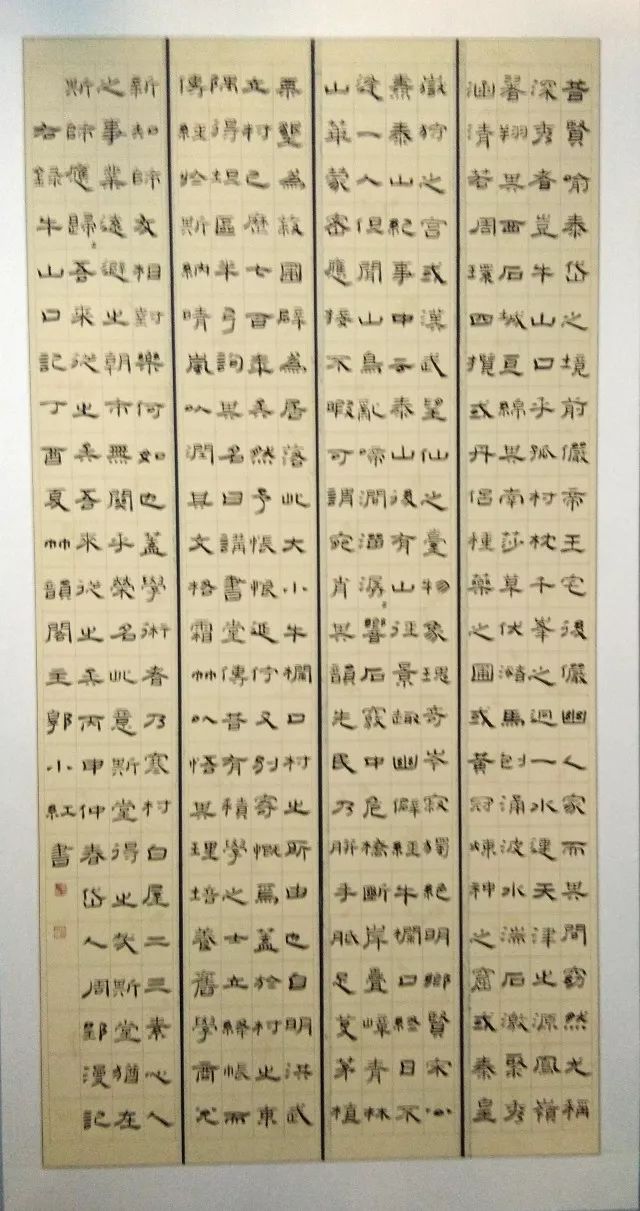 昔賢喻泰岱之境前儼帝王宅後儼幽人家而其間窈然尤稱
深秀者豈牛山口乎孤村枕千峯之迥一水建天津之源鳳嶺
翥翔其西石城亘綿其南莎草伏瀦馬刨涌波水湍石激聚秀
涵清若周環四攢或丹侶種藥之圃或黃冠煉神之窟或秦皇
嶽狩之宮或漢武望仙之臺物象瑰奇岑寂獨絕明鄉賢宋公
燾泰山紀事中云泰山後有山徑景趣幽僻經牛欄口終日不
逢一人但聞山鳥亂啼澗溜潺響石竅中危橋斷岸疊嶂青林
山菓蒙密應接不暇可謂宛肖其韻先民乃胼手胝足芟茅植
栗墾為蔬圃辟為居落此大小牛欄口村之所由也自明洪武
立村已歷七百年矣然予悵恨延佇又別寄慨焉蓋於村之東
隅得坦區半弓詢其名曰講書堂傳昔有積學之士立絳帳而
傳經於斯納晴嵐以潤其文格霜竹以悟其理培養舊學商兌
新知師友相對樂何如也蓋學術者乃寒村白屋二三素心人
之事業遠避之朝市無關乎榮名此意斯堂得之矣斯堂猶在
斯師應歸吾來從之矣吾來從之矣丙申仲春岱人周郢漫記
右錄牛山口記丁酉夏竹韻閣主郭小紅書